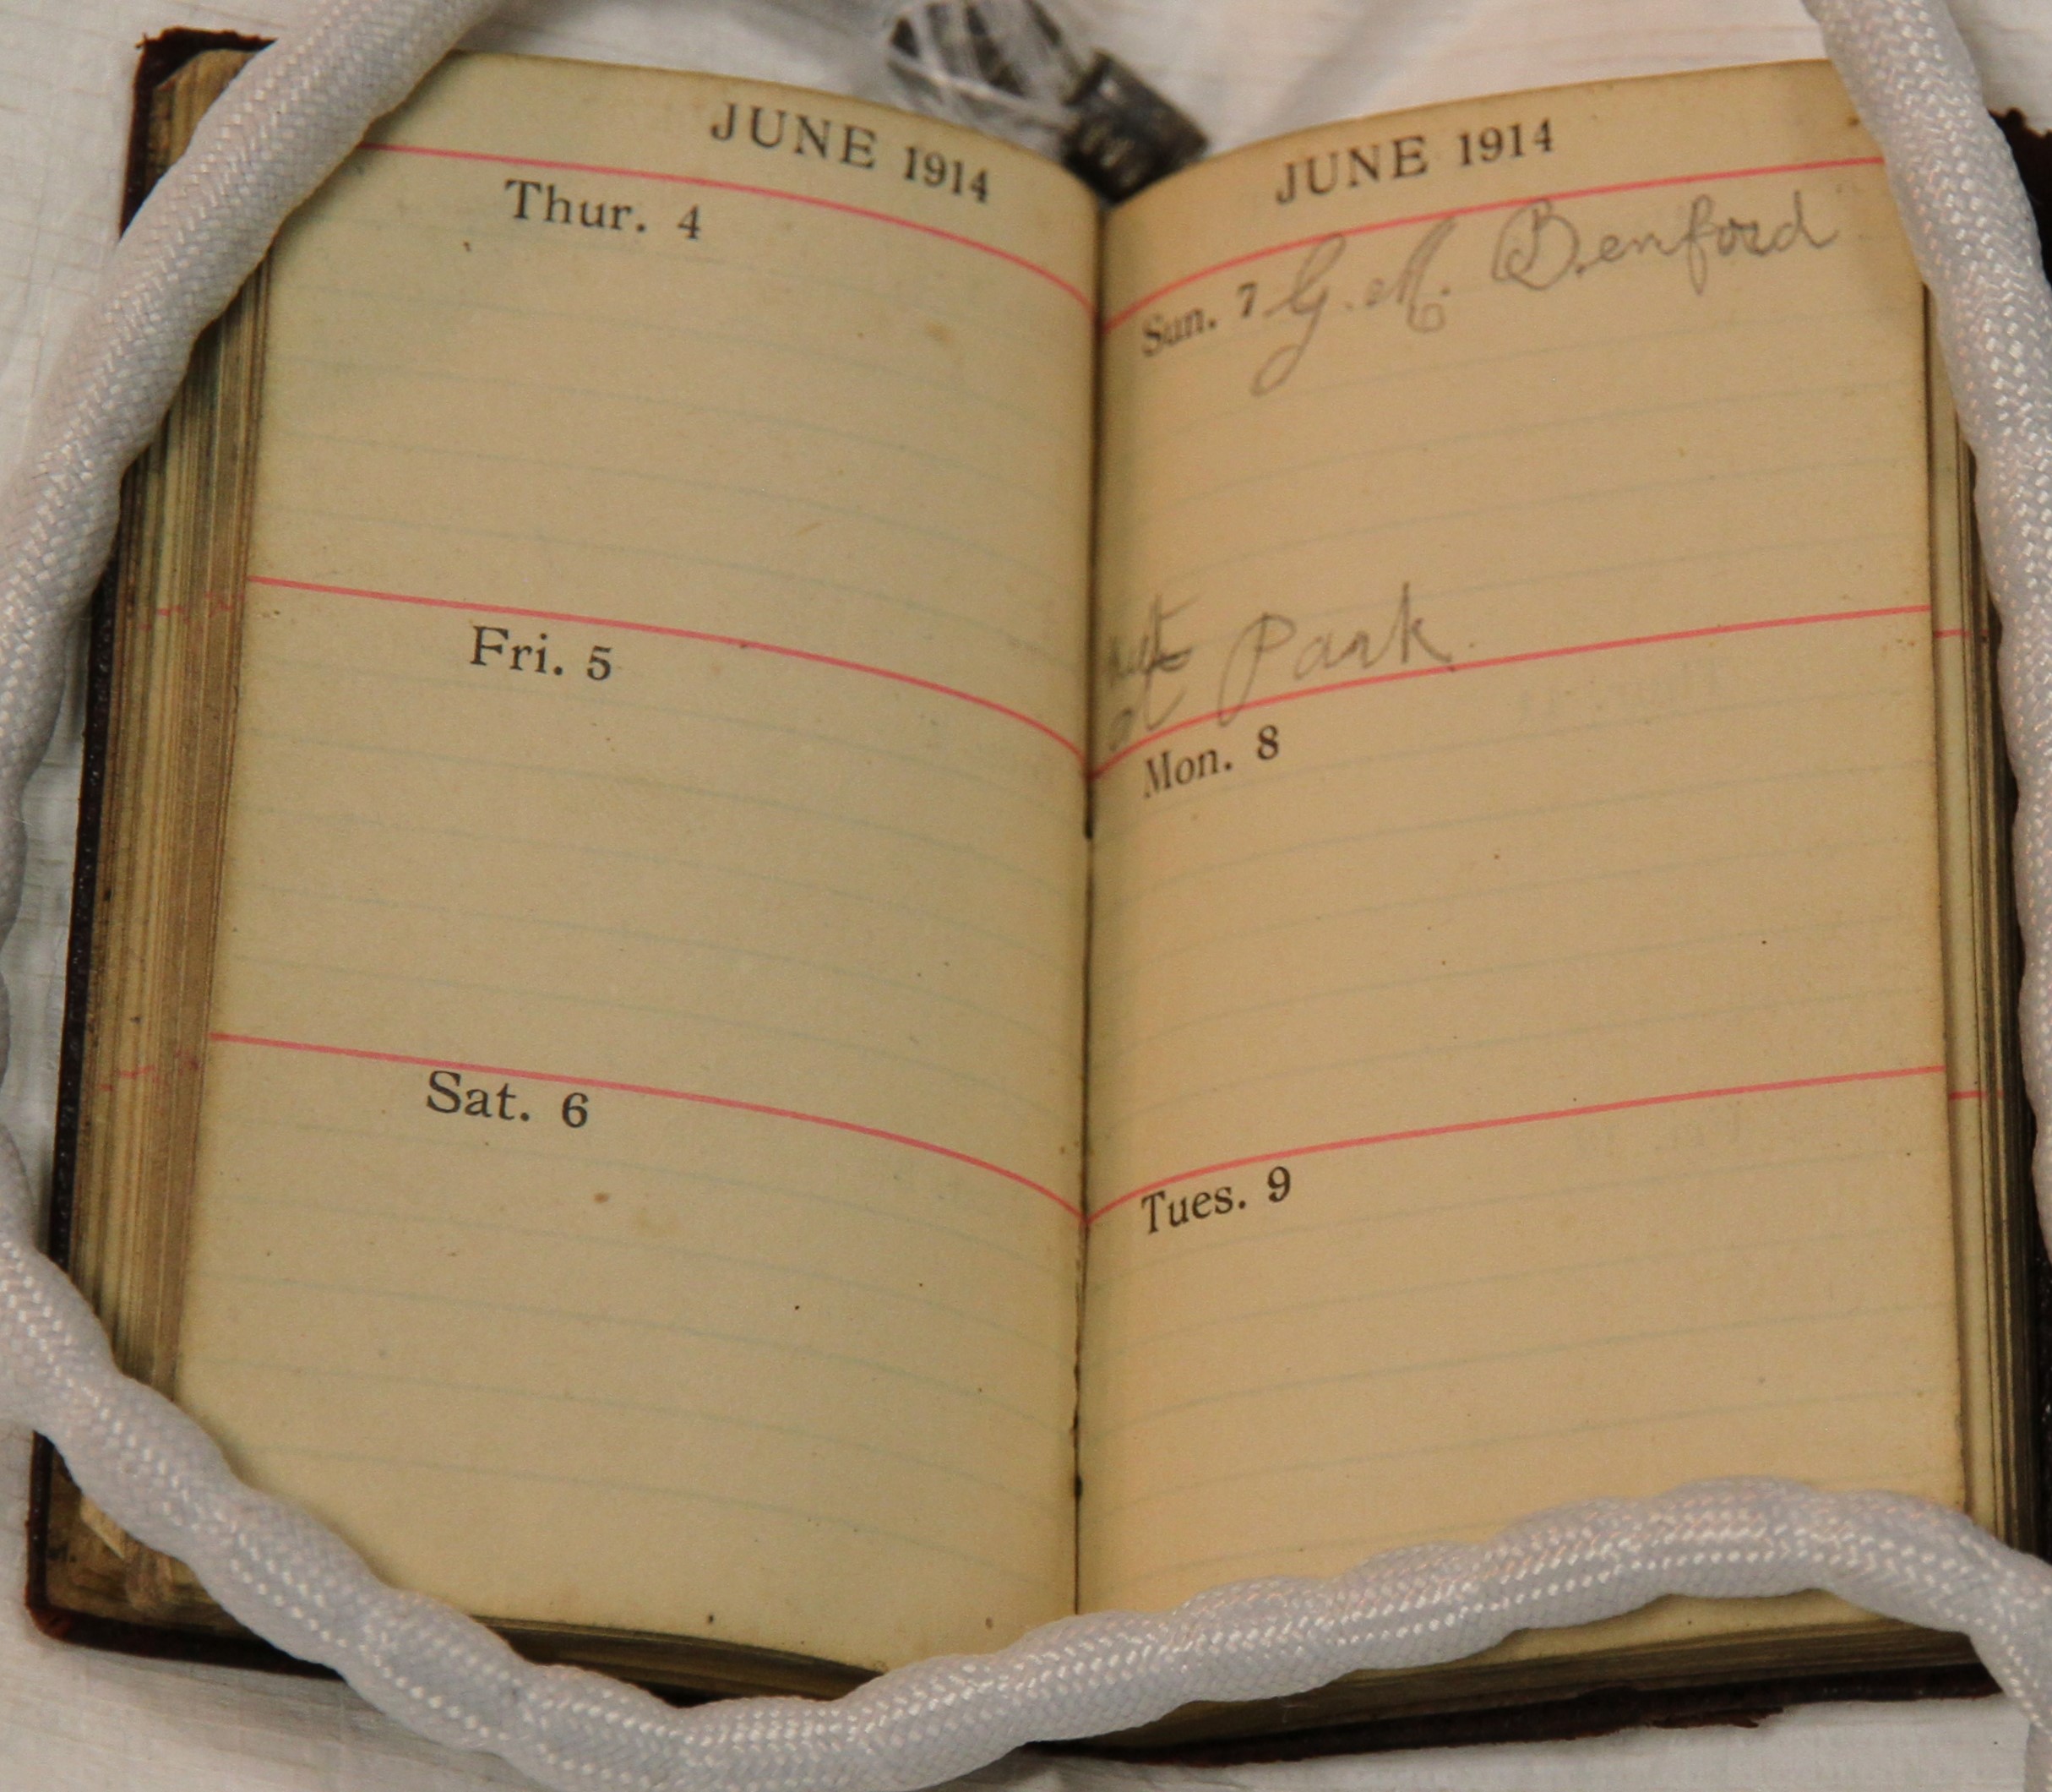 JUNE 1914
Thur. 4
Fri. 5
Sat. 6
JUNE 1914
Sun. 7 G. M. Benford
at Park.
Mon. 8
Tues. 9